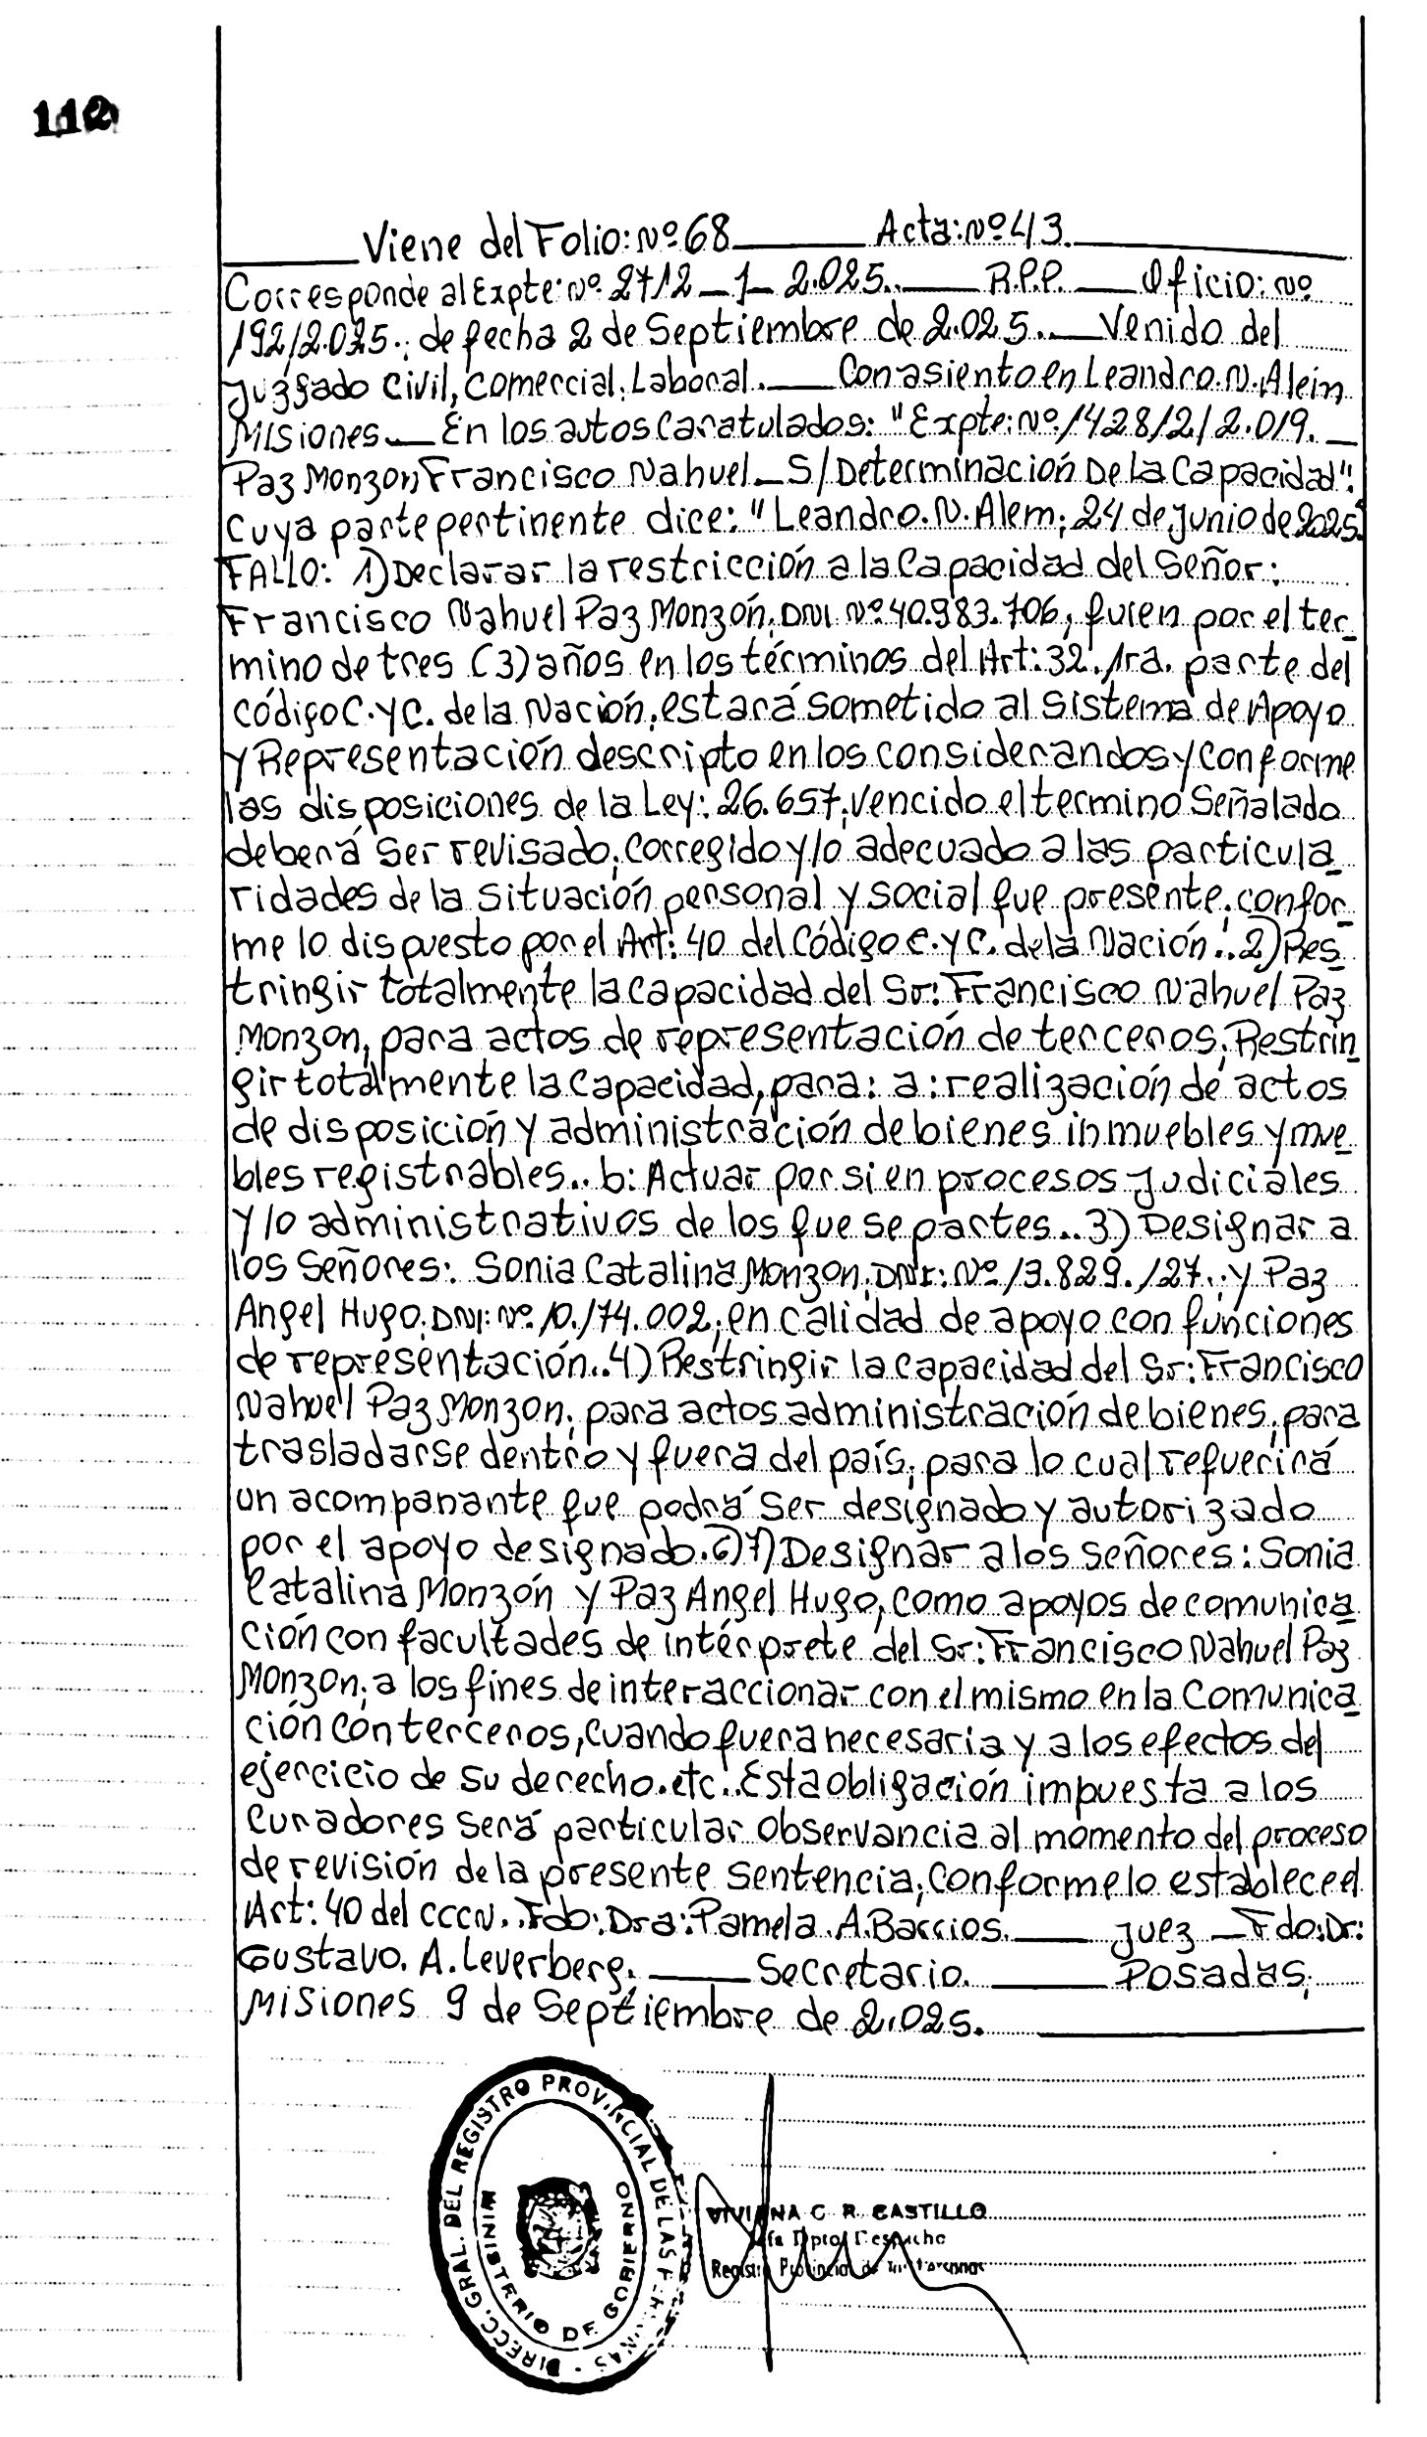 112
Viene del Folio: Nº 68 Acta: Nº 43.
Corresponde al Expte: Nº 2712 _ 1 _ 2.025. R.P.P. Oficio: Nº
192/2.025.; de fecha 2 de Septiembre de 2.025. Venido del
Juzgado Civil, Comercial, Laboral. Con asiento en Leandro. N. Alem
Misiones. En los autos Caratulados: "Expte: Nº 1428/2/2.019.
Paz Monzon Francisco Nahuel _ S/ Determinación De La Capacidad":
Cuya parte pertinente dice: "Leandro. N. Alem; 24 de Junio de 2025.
FALLO: 1) Declarar la restricción a la Capacidad del Señor:
Francisco Nahuel Paz Monzón, DNI Nº 40.983.706, quien por el ter_
mino de tres (3) años en los términos del Art: 32. 1ra. parte del
código C. y C. de la Nación, estará sometido al Sistema de Apoyo
y Representación descripto en los considerandos y conforme
las disposiciones de la Ley: 26.657, vencido el termino Señalado
deberá Ser revisado, Corregido y/o adecuado a las particula_
ridades de la situación personal y social que presente, confor_
me lo dispuesto por el Art: 40 del Código C. y C. de la Nación.. 2) Res_
tringir totalmente la capacidad del Sr: Francisco Nahuel Paz
Monzon, para actos de representación de terceros; Restrin_
gir totalmente la Capacidad, para: a: realización de actos
de disposición y administración de bienes inmuebles y mue_
bles registrables.. b: Actuar por si en procesos Judiciales
y/o administrativos de los que se partes.. 3) Designar a
los Señores: Sonia Catalina Monzon, DNI: Nº 13.829.127.. y Paz
Angel Hugo, DNI: Nº 10.174.002, en calidad de apoyo con funciones
de representación.. 4) Restringir la capacidad del Sr: Francisco
Nahuel Paz Monzon, para actos administración de bienes, para
trasladarse dentro y fuera del país, para lo cual requerirá
un acompanante que podrá Ser designado y autorizado
por el apoyo designado. 6) 7) Designar a los señores: Sonia
Catalina Monzón y Paz Angel Hugo, como apoyos de comunica_
ción con facultades de intérprete del Sr: Francisco Nahuel Paz
Monzon, a los fines de interaccionar con el mismo en la Comunica_
ción con terceros, cuando fuera necesaria y a los efectos del
ejercicio de su derecho. etc.. Esta obligación impuesta a los
Curadores Será particular observancia al momento del proceso
de revisión de la presente Sentencia, Conforme lo establece el
Art: 40 del CCCN.. Fdo: Dra: Pamela. A. Barrios. Juez _ Fdo: Dr:
Gustavo. A. Leverberg. Secretario. Posadas,
Misiones 9 de Septiembre de 2.025.
DIRECC. GRAL. DEL REGISTRO PROVINCIAL DE LAS PERSONAS
MINISTERIO DE GOBIERNO
VIVIANA C. R. CASTILLO
Jefa Dpto. Despacho
Registro Provincial de las Personas